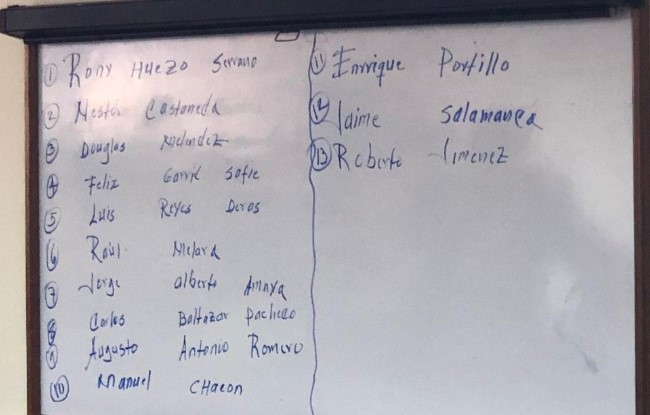 1 Rony Huezo Serrano
2 Nestor Castaneda
3 Douglas Melendez
4 Feliz Garrid Sofie
5 Luis Reyes Deras
6 Raúl Melara
7 Jorge alberto Amaya
8 Carlos Baltazar Pacheco
9 Augusto Antonio Romero
10 Manuel CHacon
11 Enrrique Portillo
12 Jaime Salamanca
13 Roberto Jimenez